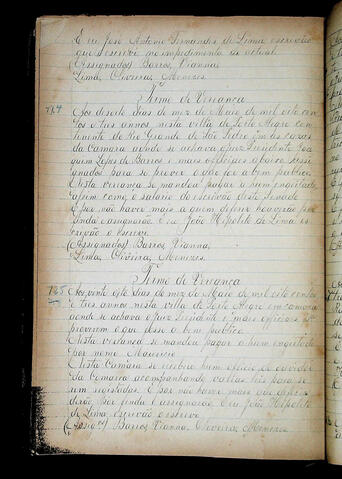 E eu José Antonio Fernandes de Lima escrivão
que escrevi no impedimento do actual
(Assignados) Barros, Vianna,
Lima, Oliveira, Menezes.
Termo de Vereança
Aos desoito dias do mez de Maio de mil oito cen-
tos e tres annos nesta villa de Porto Alegre con-
tinente do Rio Grande de São Pedro em as cazas
da Camara aonde se achava o Juiz Presidente Joa-
quim Lopes de Barros e mais officiaes abaixo assi-
gnados para se prover o que fôce a bem publico.
Nesta vereança se mandou pagar a hum engeitado
assim como o salario do escrivão deste Senado
E por não haver mais a quem deferir houverão por
finda e assignarão. E eu João Hipolito de Lima es-
crivão o escrevi.
(Assignados) Barros, Vianna,
Lima, Oliveira, Menezes.
Termo de Vereança
Aos vinte oito dias do mez de Maio de mil oito centos
e tres annos nesta villa de Porto Alegre em camara
aonde se achava o Juiz Presidente e mais officiaes p.ª
proverem o que fosse a bem publico.
Nesta vereança se mandou pagar a hum engeitado
por nome Mauricio
Nesta Camara se recebeu hum officio do ouvidor
da Comarca acompanhando varias leis para se-
rem registadas. E por não haver mais que defe-
rirão por finda e assignarão. E eu João Hipolito
de Lima, escrivão o escrevi.
(Assig.os) Barros, Vianna, Oliveira, Menezes.